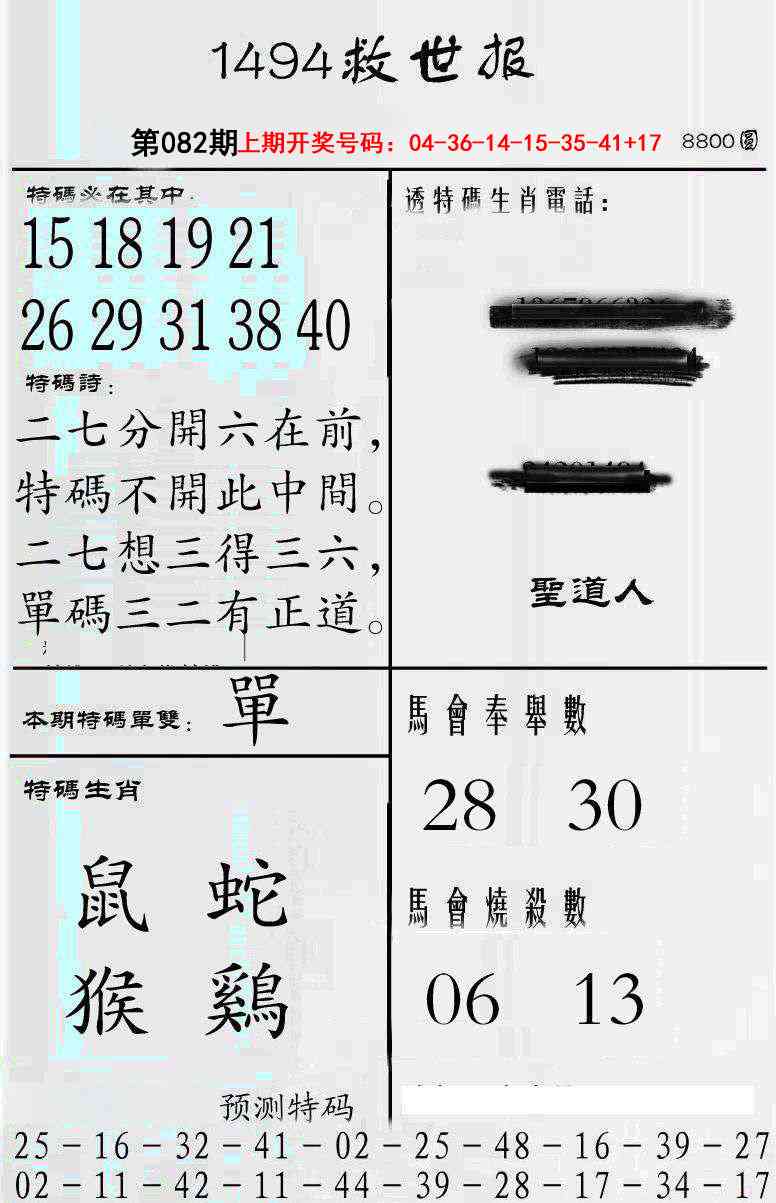 1494救世报
第082期上期开奖号码：04-36-14-15-35-41+17 8800圓
特碼必在其中：
15 18 19 21
26 29 31 38 40
特碼詩：
二七分開六在前，
特碼不開此中間。
二七想三得三六，
單碼三二有正道。
透特碼生肖電話：
聖道人
本期特碼單雙：單
特碼生肖
鼠 蛇
猴 鷄
馬會奉舉數
28 30
馬會燒殺數
06 13
预测特码
25－16－32－41－02－25－48－16－39－27
02－11－42－11－44－39－28－17－34－17